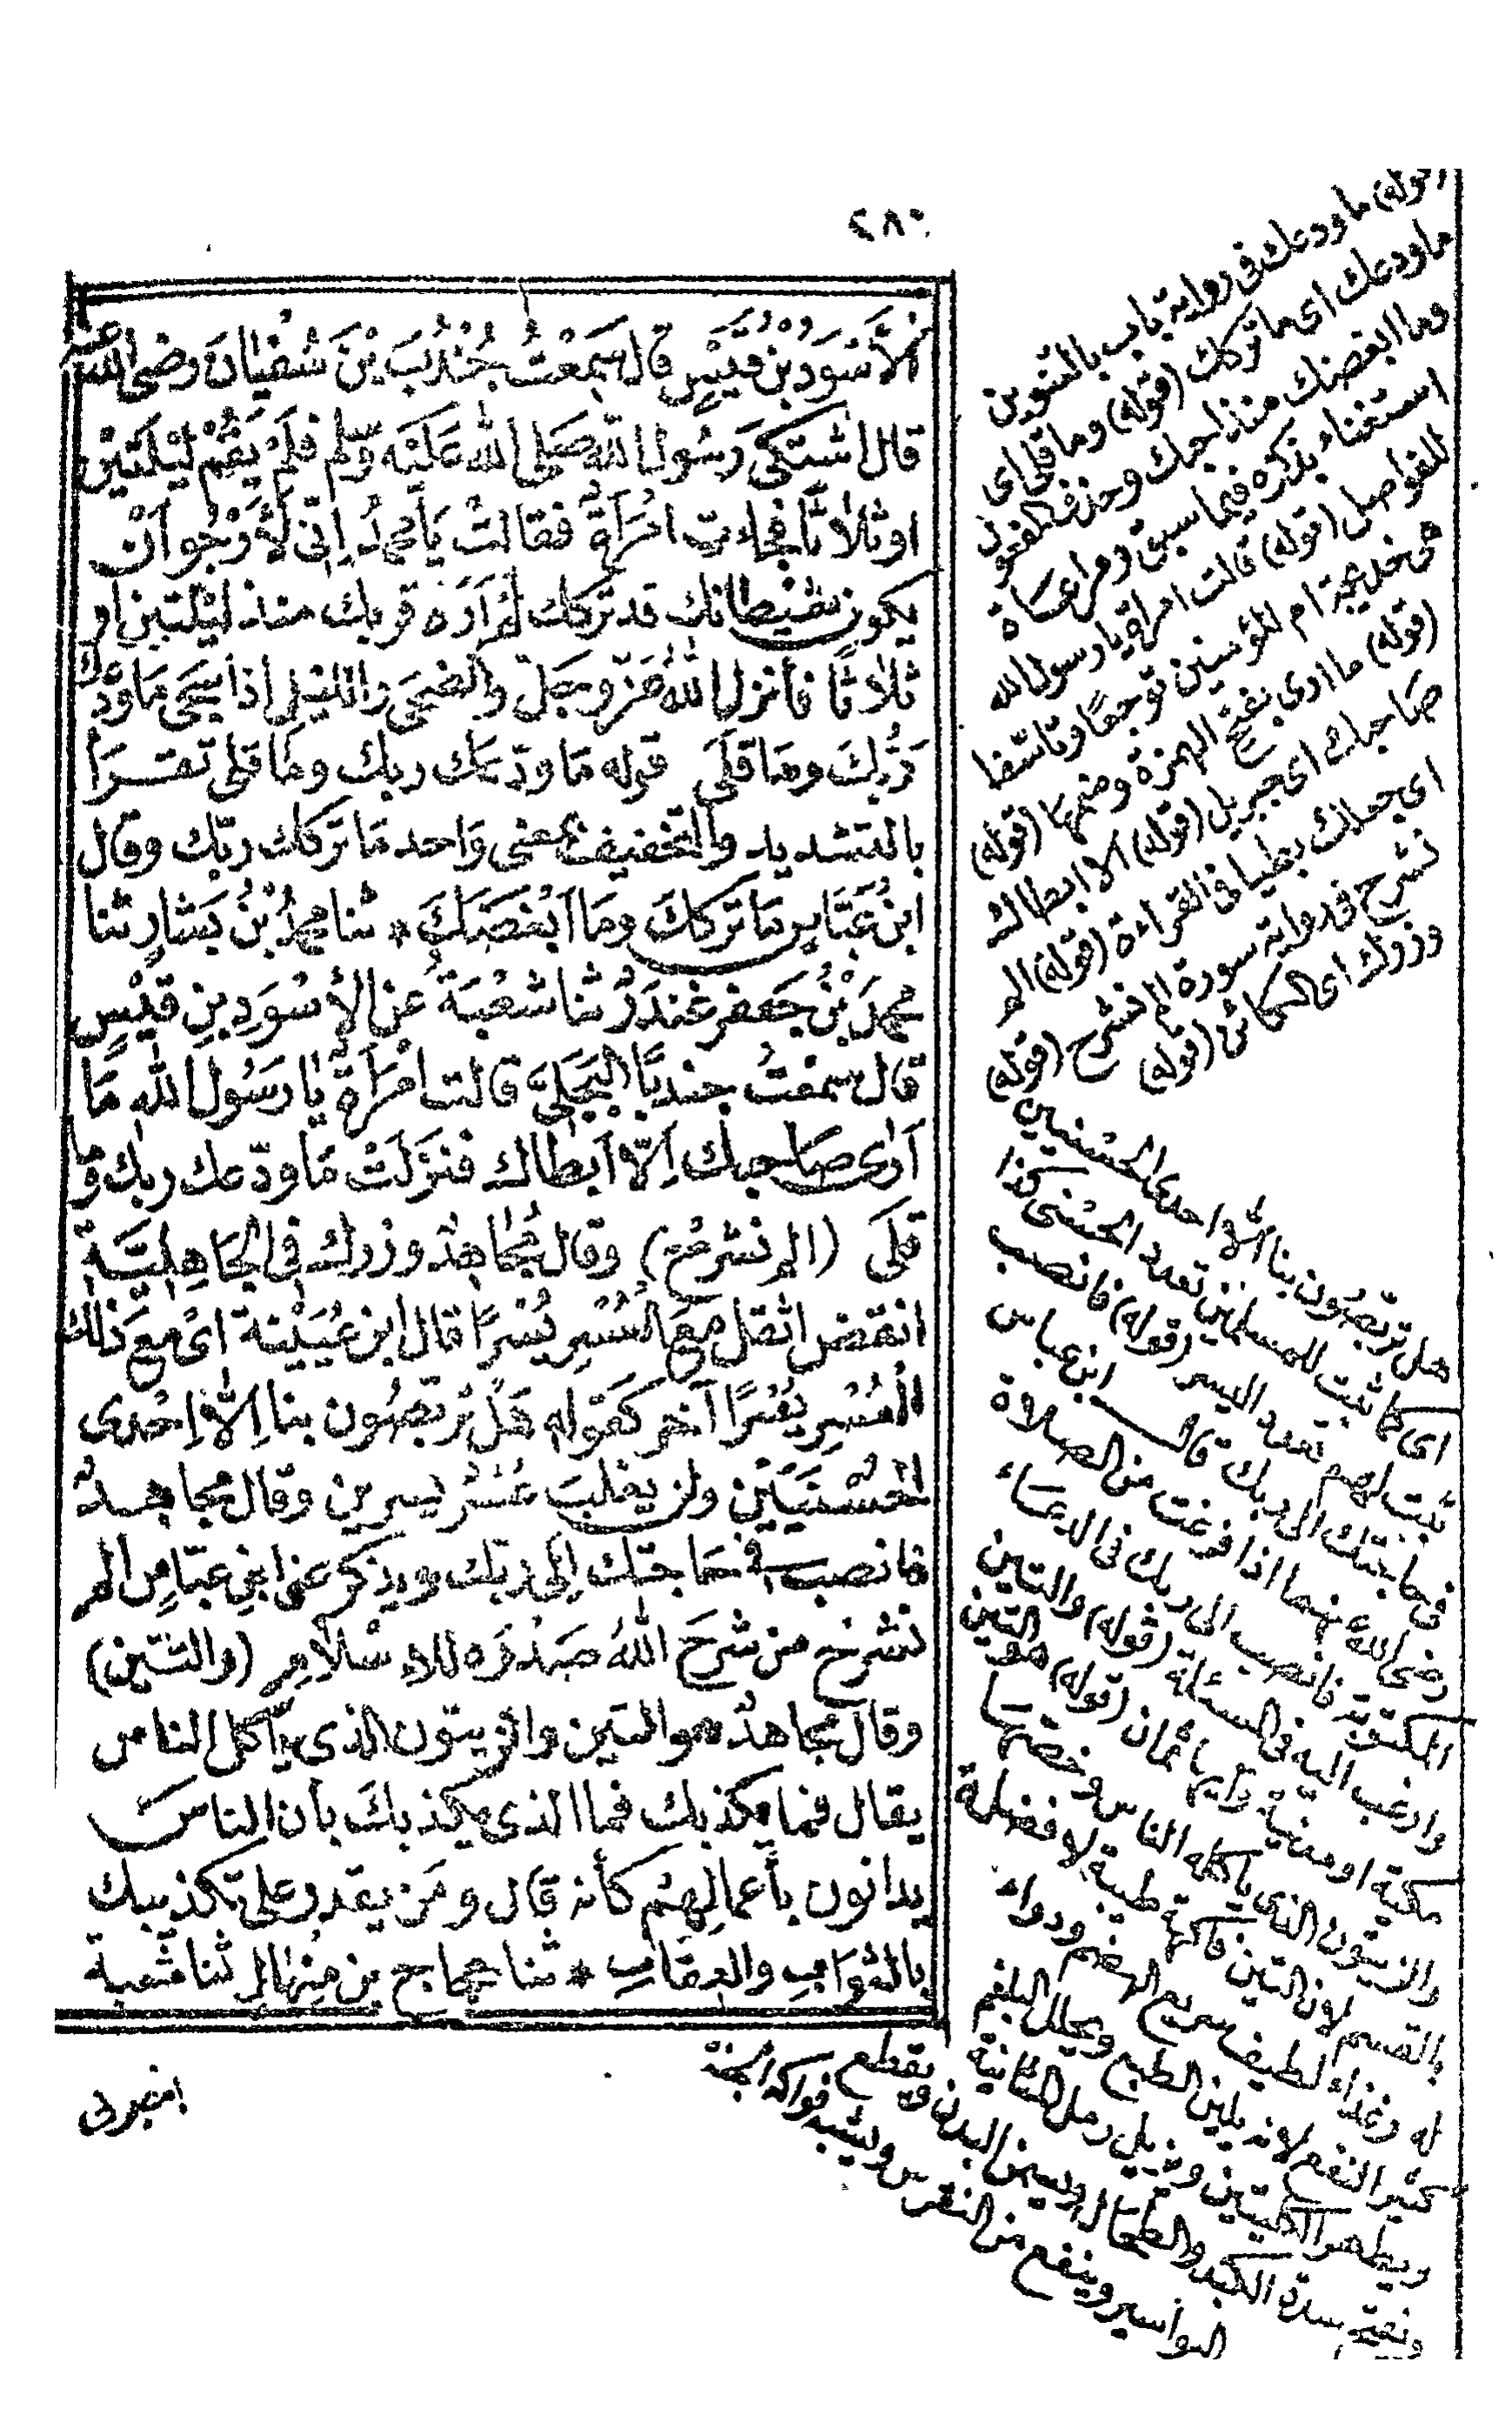 ٢٨٠
الْأَسْوَدُ بْنُ قَيْسٍ قال سَمِعْتُ جُنْدُبَ بْنَ سُفْيَانَ رضى الله عنه
قال اشتكى رَسُول الله صَلى الله عَلَيْه وسّلم فلَمْ يَقُمْ لَيْلَتَيْن
او ثلاثًا فجاءت امْرَأةٌ فقالتْ يَا محمدُ اِنّى لَأَرْجُو اَنْ
يكون شَيْطانك قد تركك لَمْ اَرَه قربك منذ ليْلتين او
ثلاثًا فأنزل اللهُ عَزّ وجَلّ والضحَى والليْل اذا سَجَى مَا وَدَّعَكَ
رَبُّكَ ومَا قَلَى قوله مَا ودّعك ربك ومَا قلى تقرَأ
بالتشديد والتخفيف بمعنى وَاحد مَا تركك ربّك وقال
ابنُ عَبَّاسٍ مَا تَرَكَكَ ومَا اَبْغَضَكَ * ثنا محمدُ بْنُ بَشارٍ ثنا
محمدُ بْنُ جَعفر غُنْدَرٌ ثنا شُعْبَةُ عَنِ الْأَسْوَدِ بنِ قَيْسٍ
قال سَمِعْتُ جندبًا البَجَلِىَّ قالت امْرَأةٌ يا رَسُول الله مَا
اَرَى صَاحِبك اِلّا اَبْطاك فنَزَلَتْ مَا ودّعك ربك وَمَا
قلَى (الم نشرحْ) وقال مُجَاهِدٌ وزرك فى الجَاهِلِيَّةِ
انقض اثقل مع العُسْرِ يُسْرًا قال ابن عُيَيْنة اىْ مَعَ ذلِك
العُسْرِ يُسْرًا آخر كقوله هَلْ تَرَبَّصُون بنا اِلَّا اِحْدى
الحُسْنَيَيْن ولن يغلبَ عُسْرٌ يسرين وقال مجاهدٌ
فانصب فى حَاجتك اِلى ربّك ويذكر عن ابن عبّاس الم
نشرحْ من شرَحَ اللهُ صَدْرَه للاِسْلَامِ (والتين)
وقال مجاهدٌ هو التين والزيتون الذى يأكل الناس
يقال فما يكذبك فما الذى يكذبكَ بأن الناس
يدانون بأعمالِهِمْ كأنه قال ومَن يقدر على تكذيبك
بالثوَابِ والعِقَابِ * ثنا حجاج بن مِنْهَالٍ ثنا شُعبة
(قوله) ما ودعك فى رواية باب بالتنوين
ما ودعك اى ما تركك (قوله) وما قلى اى
وما ابغضك منذ احبك وحذف المفعول
استغناء بذكره فيما سبق ومراعاة
للفواصل (قوله) قالت امرأة يا رسول الله
هى خديجة ام المؤمنين توجعًا وتأسفا
(قوله) ما ارى بفتح الهمزة وضمها (قوله)
صاحبك اى جبريل (قوله) الا ابطاك
اى جعلك بطيا فى القراءة (قوله) الم
نشرح فى رواية سورة الم نشرح (قوله)
وزرك اى الكائن (قوله)
هل تربصون بنا الا احدى الحسنيين
اى كما ثبت للمسلمين تعدد الحسنى كذا
ثبت لهم تعدد اليسر (قوله) فانصب
فى حاجتك الى ربك قال ابن عباس
رضى الله عنهما اذا فرغت من الصلاة
المكتوبة فانصب الى ربك فى الدعاء
وارغب اليه فى المسئلة (قوله) والتين
مكية او مدنية وآيها ثمان (قوله) هو التين
والزيتون الذى يأكله الناس وخصهما
بالقسم لان التين فاكهة طيبة لا فضلة
له وغذاء لطيف سريع الهضم ودواء
كثير النفع لانه يلين الطبع ويحلل البلغم
ويطهر الكليتين ويزيل رمل المثانية
ويفتح سدة الكبد والطحال ويسمن البدن ويقطع
البواسير وينفع من النقرس ويشبه فواكه الجنة